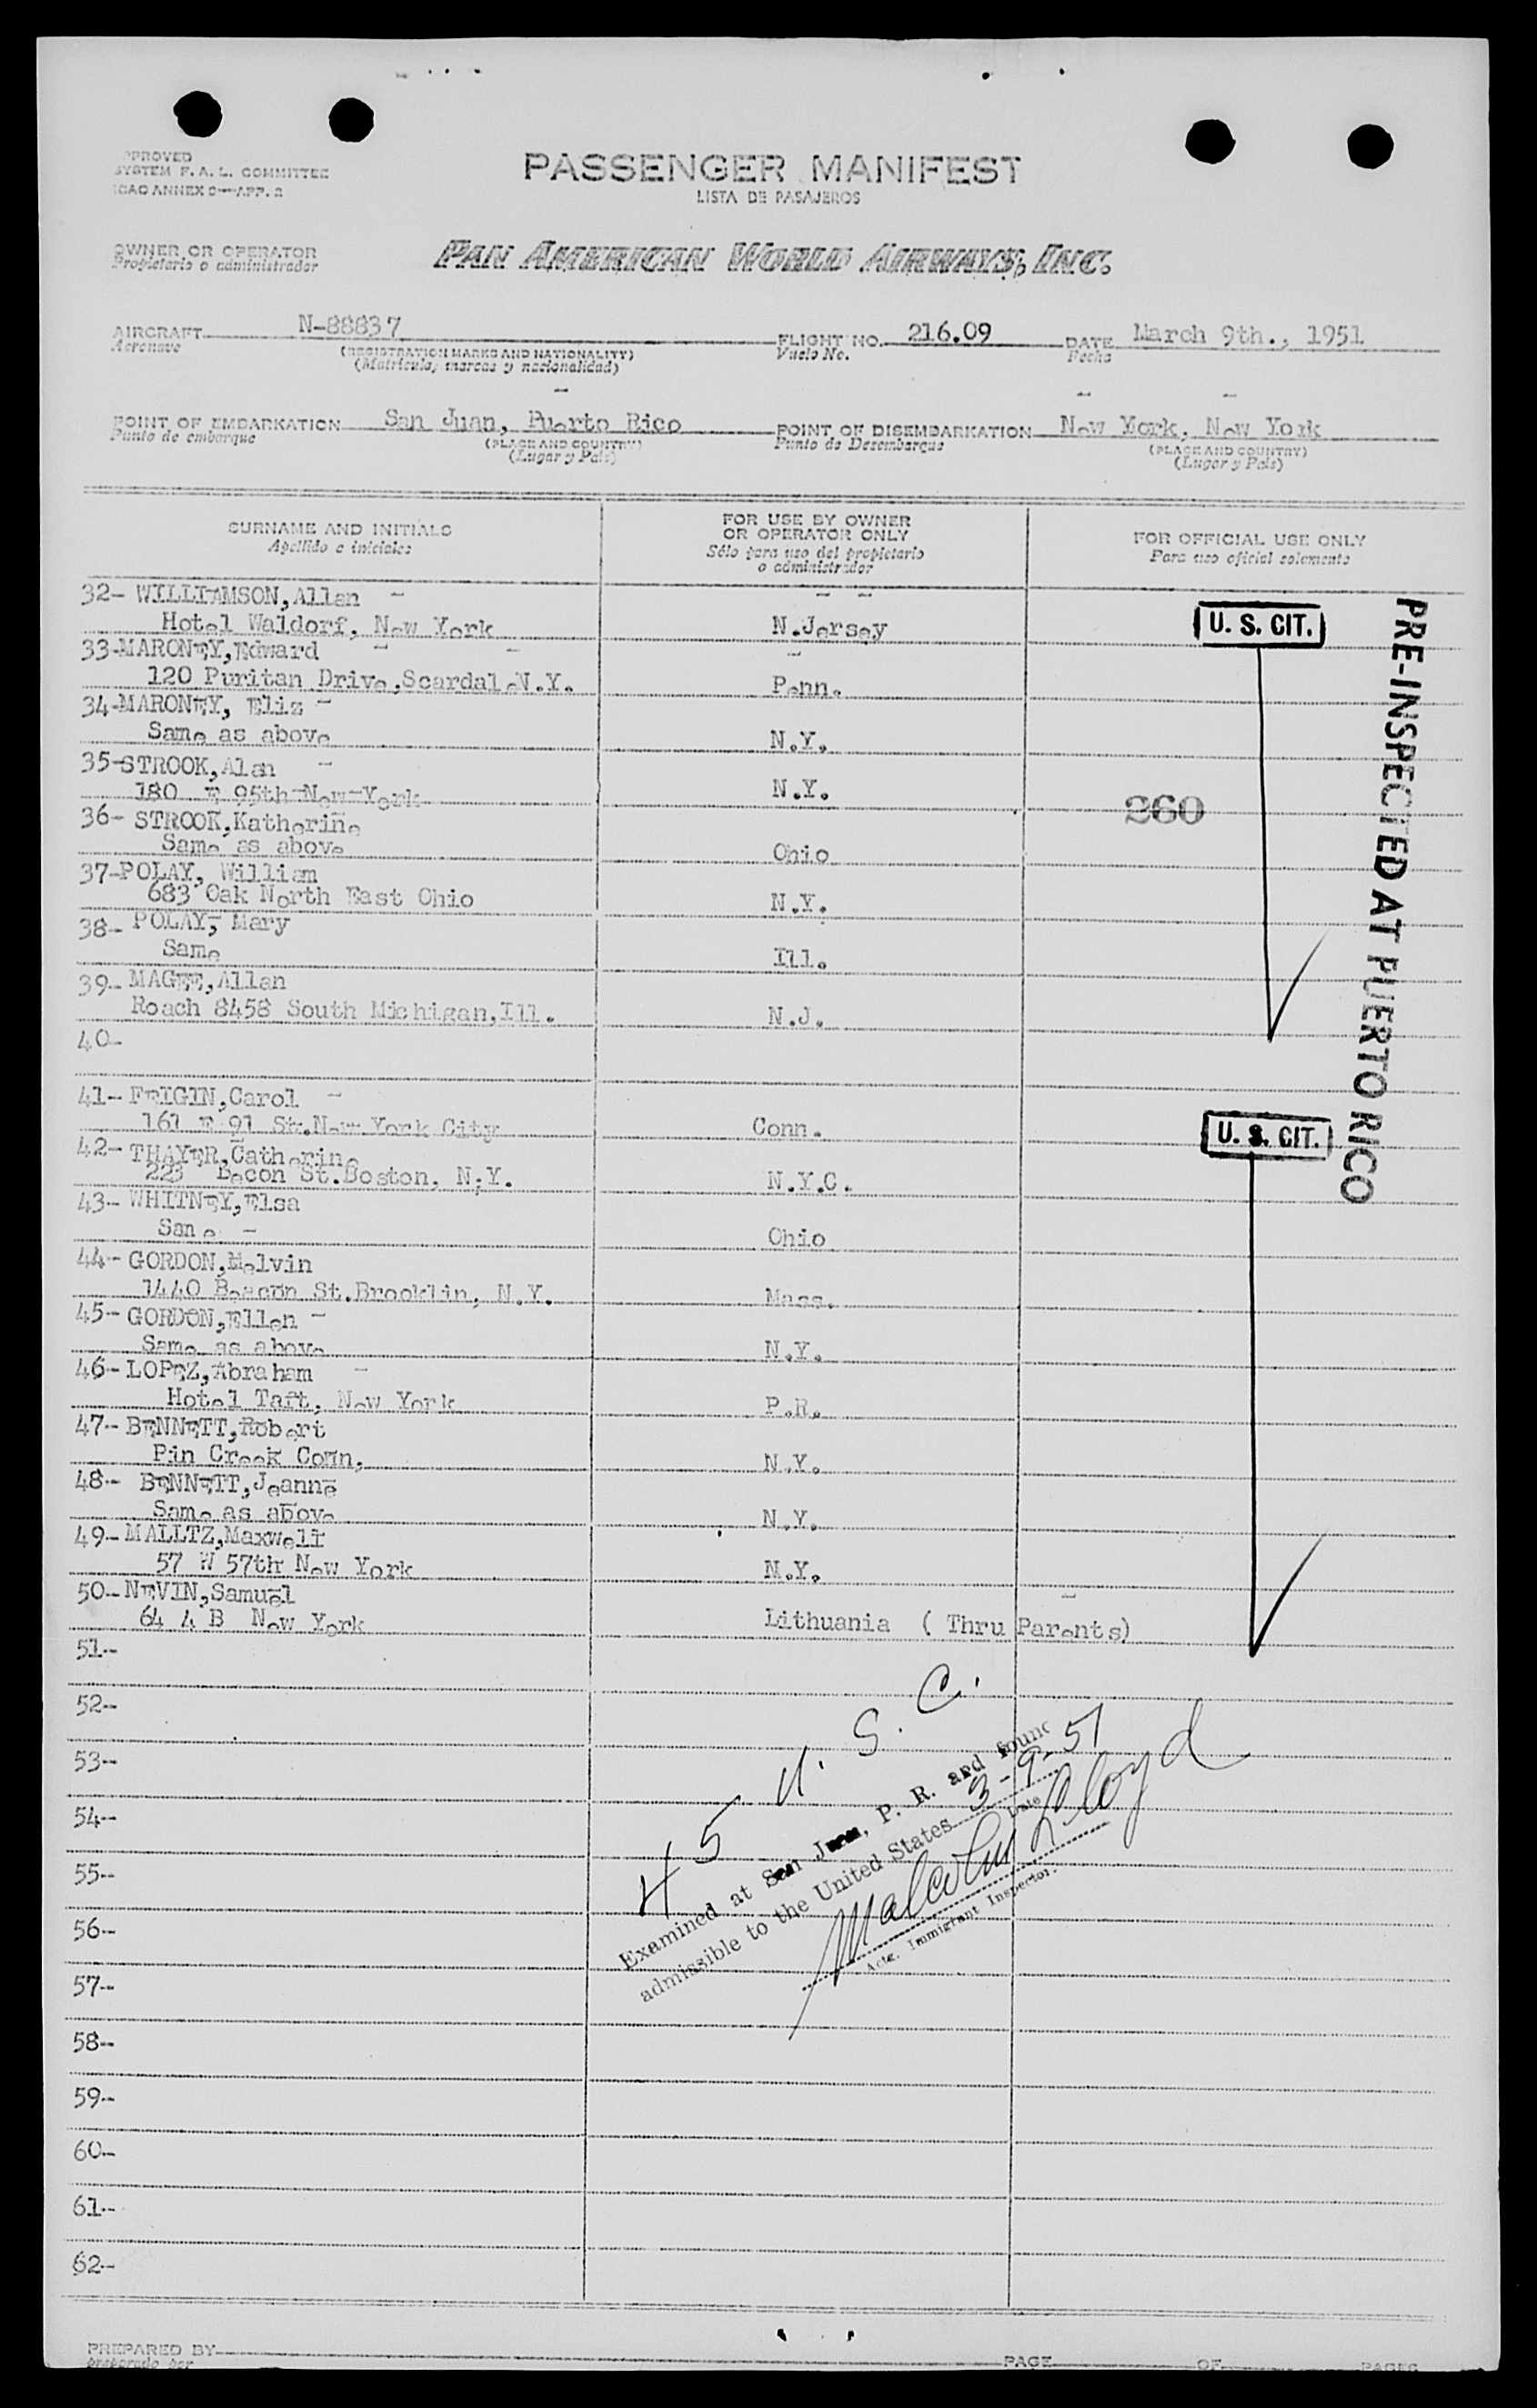 APPROVED
SYSTEM F. A. L. COMMITTEE
ICAO ANNEX 9—APP. 2
PASSENGER MANIFEST
LISTA DE PASAJEROS
OWNER OR OPERATOR
Propietario o administrador
PAN AMERICAN WORLD AIRWAYS, INC.
AIRCRAFT N-88837 FLIGHT NO. 216.09 DATE March 9th., 1951
Aeronave (REGISTRATION MARKS AND NATIONALITY) Vuelo No. Fecha
(Matricula, marcas y nacionalidad)
POINT OF EMBARKATION San Juan, Puerto Rico POINT OF DISEMBARKATION New York, New York
Punto de embarque (PLACE AND COUNTRY) Punto de Desembarque (PLACE AND COUNTRY)
(Lugar y País) (Lugar y País)
SURNAME AND INITIALS FOR USE BY OWNER OR OPERATOR ONLY FOR OFFICIAL USE ONLY
Apellido e iniciales Sólo para uso del propietario o administrador Para uso oficial solamente
32- WILLIAMSON,Allan -
Hotel Waldorf, New York N.Jersey U. S. CIT.
33-MARONEY,Edward - -
120 Puritan Drive,Scardale N.Y. Penn.
34-MARONEY, Eliz -
Same as above N.Y.
35-STROOK,Alan -
180 E 95th New York N.Y.
260
36- STROOK,Katherine
Same as above Ohio
37-POLAY, William
683 Oak North East Ohio N.Y.
38- POLAY, Mary
Same Ill.
39- MAGEE,Allan
Roach 8458 South Michigan,Ill. N.J.
40-
41- FEIGIN,Carol -
161 E 91 St.New York City Conn. U. S. CIT.
42- THAYER,Catherine
223 Becon St.Boston, N.Y. N.Y.C.
43- WHITNEY,Elsa
Same - Ohio
44- GORDON,Melvin
1440 Beacon St.Brooklin, N.Y. Mass.
45- GORDON,Ellen -
Same as above N.Y.
46- LOPEZ,Abraham -
Hotel Taft, New York P.R.
47- BENNETT,Robert
Pin Creek Conn. N.Y.
48- BENNETT,Jeanne
Same as above N.Y.
49- MALLTZ,Maxwell
57 W 57th New York N.Y.
50- NEVIN,Samuel
64 A B New York Lithuania ( Thru Parents)
PRE-INSPECTED AT PUERTO RICO
51-
52-
53-
54-
55-
56-
57-
58-
59-
60-
61-
62-
45 U. S. C.
Examined at San Juan, P. R. and found
admissible to the United States 3-9-51
Date
Malcolm Lloyd
Actg. Immigrant Inspector.
PREPARED BY PAGE OF PAGES
preparado por